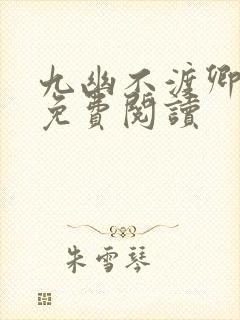 九幽不渡卿
免費閱讀
朱雪琴